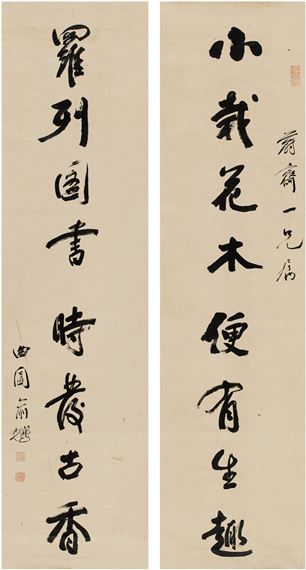 蔚齋一兄屬
小栽花木便有生趣
羅列圖書時發古香
曲園俞樾